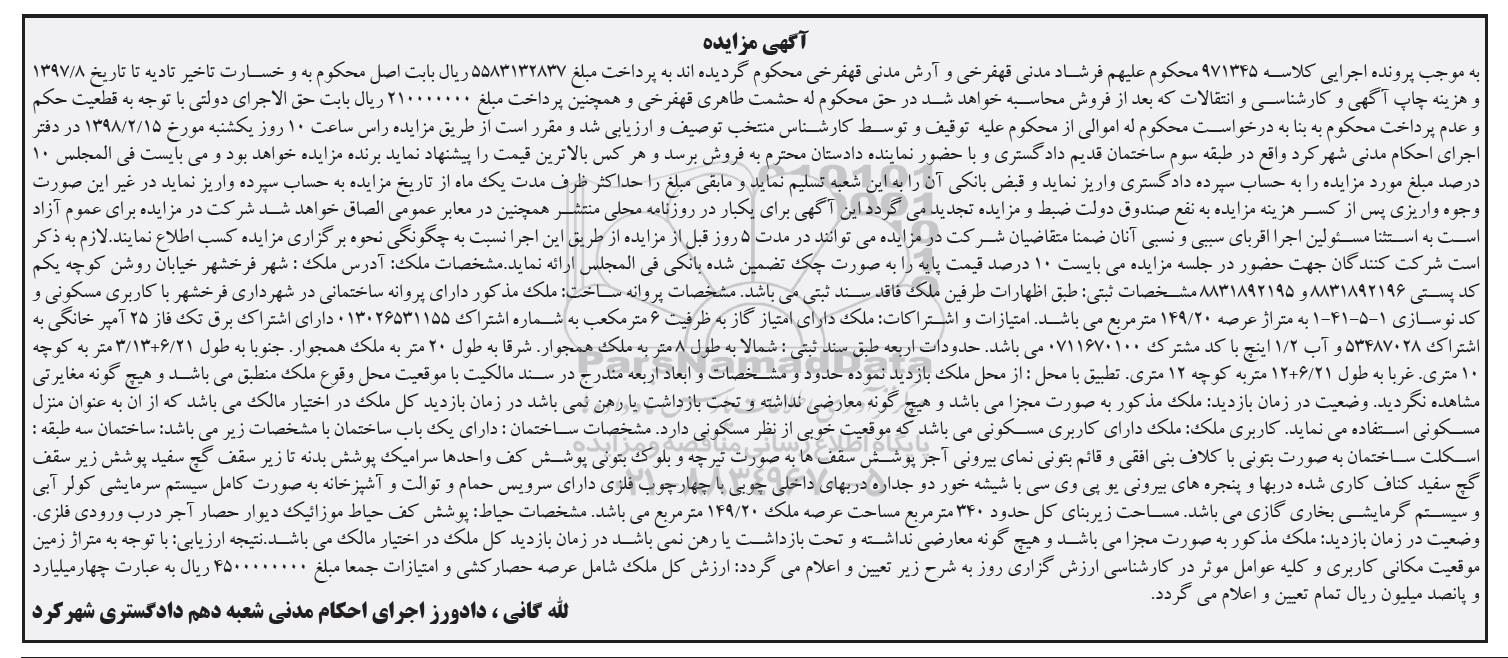 آگهی مزایده
به موجب پرونده اجرایی کلاسه ۹۷۱۳۴۵ محکوم علیهم فرشاد مدنی قهفرخی و آرش مدنی قهفرخی محکوم گردیده اند به پرداخت مبلغ ۵۵۸۳۱۳۲۸۳۷ ریال بابت اصل محکوم به و خسارت تاخیر تادیه تا تاریخ ۱۳۹۷/۸
و هزینه چاپ آگهی و کارشناسی و انتقالات که بعد از فروش محاسبه خواهد شد در حق محکوم له حشمت طاهری قهفرخی و همچنین پرداخت مبلغ ۲۱۰۰۰۰۰۰۰ ریال بابت حق الاجرای دولتی با توجه به قطعیت حکم
و عدم پرداخت محکوم به بنا به درخواست محکوم له اموالی از محکوم علیه توقیف و توسط کارشناس منتخب توصیف و ارزیابی شد و مقرر است از طریق مزایده راس ساعت ۱۰ روز یکشنبه مورخ ۱۳۹۸/۲/۱۵ در دفتر
اجرای احکام مدنی شهرکرد واقع در طبقه سوم ساختمان قدیم دادگستری و با حضور نماینده دادستان محترم به فروش برسد و هر کس بالاترین قیمت را پیشنهاد نماید برنده مزایده خواهد بود و می بایست فی المجلس ۱۰
درصد مبلغ مورد مزایده را به حساب سپرده دادگستری واریز نماید و قبض بانکی آن را به این شعبه تسلیم نماید و مابقی مبلغ را حداکثر ظرف مدت یک ماه از تاریخ مزایده به حساب سپرده واریز نماید در غیر این صورت
وجوه واریزی پس از کسر هزینه مزایده به نفع صندوق دولت ضبط و مزایده تجدید می گردد.این آگهی برای یکبار در روزنامه محلی منتشر همچنین در معابر عمومی الصاق خواهد شد شرکت در مزایده برای عموم آزاد
است به استثنا مسئولین اجرا اقربای سببی و نسبی آنان ضمنا متقاضیان شرکت در مزایده می توانند در مدت ۵ روز قبل از مزایده از طریق این اجرا نسبت به چگونگی نحوه برگزاری مزایده کسب اطلاع نمایند.لازم به ذکر
است شرکت کنندگان جهت حضور در جلسه مزایده می بایست ۱۰ درصد قیمت پایه را به صورت چک تضمین شده بانکی فی المجلس ارائه نماید.مشخصات ملک: آدرس ملک : شهر فرخشهر خیابان روشن کوچه یکم
کد پستی ۸۸۳۱۸۹۲۱۹۶ و ۸۸۳۱۸۹۲۱۹۵ مشخصات ثبتی: طبق اظهارات طرفین ملک فاقد سند ثبتی می باشد. مشخصات پروانه ساخت: ملک مذکور دارای پروانه ساختمانی در شهرداری فرخشهر با کاربری مسکونی و
کد نوسازی ۱-۵-۴۱-۱ به متراژ عرصه ۱۴۹/۲۰ مترمربع می باشد. امتیازات و اشتراکات: ملک دارای امتیاز گاز به ظرفیت ۶ مترمکعب به شماره اشتراک ۰۱۳۰۲۶۵۳۱۱۵۵ دارای اشتراک برق تک فاز ۲۵ آمپر خانگی به
اشتراک ۵۳۴۸۷۰۲۸ و آب ۱/۲ اینچ با کد مشترک ۰۷۱۱۶۷۰۱۰۰ می باشد. حدودات اربعه طبق سند ثبتی : شمالا به طول ۸ متر به ملک همجوار. شرقا به طول ۲۰ متر به ملک همجوار. جنوبا به طول ۶/۲۱+۳/۱۳ متر به کوچه
۱۰ متری. غربا به طول ۶/۲۱+۱۲ متربه کوچه ۱۲ متری. تطبیق با محل : از محل ملک بازدید نموده حدود و مشخصات و ابعاد اربعه مندرج در سند مالکیت با موقعیت محل وقوع ملک منطبق می باشد و هیچ گونه مغایرتی
مشاهده نگردید. وضعیت در زمان بازدید: ملک مذکور به صورت مجزا می باشد و هیچ گونه معارضی نداشته و تحت بازداشت یا رهن نمی باشد در زمان بازدید کل ملک در اختیار مالک می باشد که از ان به عنوان منزل
مسکونی استفاده می نماید. کاربری ملک: ملک دارای کاربری مسکونی می باشد که موقعیت خوبی از نظر مسکونی دارد. مشخصات ساختمان : دارای یک باب ساختمان با مشخصات زیر می باشد: ساختمان سه طبقه :
اسکلت ساختمان به صورت بتونی با کلاف بنی افقی و قائم بتونی نمای بیرونی آجر پوشش سقف ها به صورت تیرچه و بلوک بتونی پوشش کف واحدها سرامیک پوشش بدنه تا زیر سقف گچ سفید پوشش زیر سقف
گچ سفید کناف کاری شده دربها و پنجره های بیرونی یو پی وی سی با شیشه خور دو جداره دربهای داخلی چوبی با چهارچوب فلزی دارای سرویس حمام و توالت و آشپزخانه به صورت کامل سیستم سرمایشی کولر آبی
و سیستم گرمایشی بخاری گازی می باشد. مساحت زیربنای کل حدود ۳۴۰ مترمربع مساحت عرصه ملک ۱۴۹/۲۰ مترمربع می باشد. مشخصات حیاط: پوشش کف حیاط موزائیک دیوار حصار آجر درب ورودی فلزی.
وضعیت در زمان بازدید: ملک مذکور به صورت مجزا می باشد و هیچ گونه معارضی نداشته و تحت بازداشت یا رهن نمی باشد در زمان بازدید کل ملک در اختیار مالک می باشد.نتیجه ارزیابی: با توجه به متراژ زمین
موقعیت مکانی کاربری و کلیه عوامل موثر در کارشناسی ارزش گزاری روز به شرح زیر تعیین و اعلام می گردد: ارزش کل ملک شامل عرصه حصارکشی و امتیازات جمعا مبلغ ۴۵۰۰۰۰۰۰۰۰ ریال به عبارت چهارمیلیارد
و پانصد میلیون ریال تمام تعیین و اعلام می گردد.
لله گانی ، دادورز اجرای احکام مدنی شعبه دهم دادگستری شهرکرد
ParsNamadData
پایگاه اطلاع رسانی مناقصه و مزایده
۰۲۱-۸۸۳۴۹۶۷۰-۵